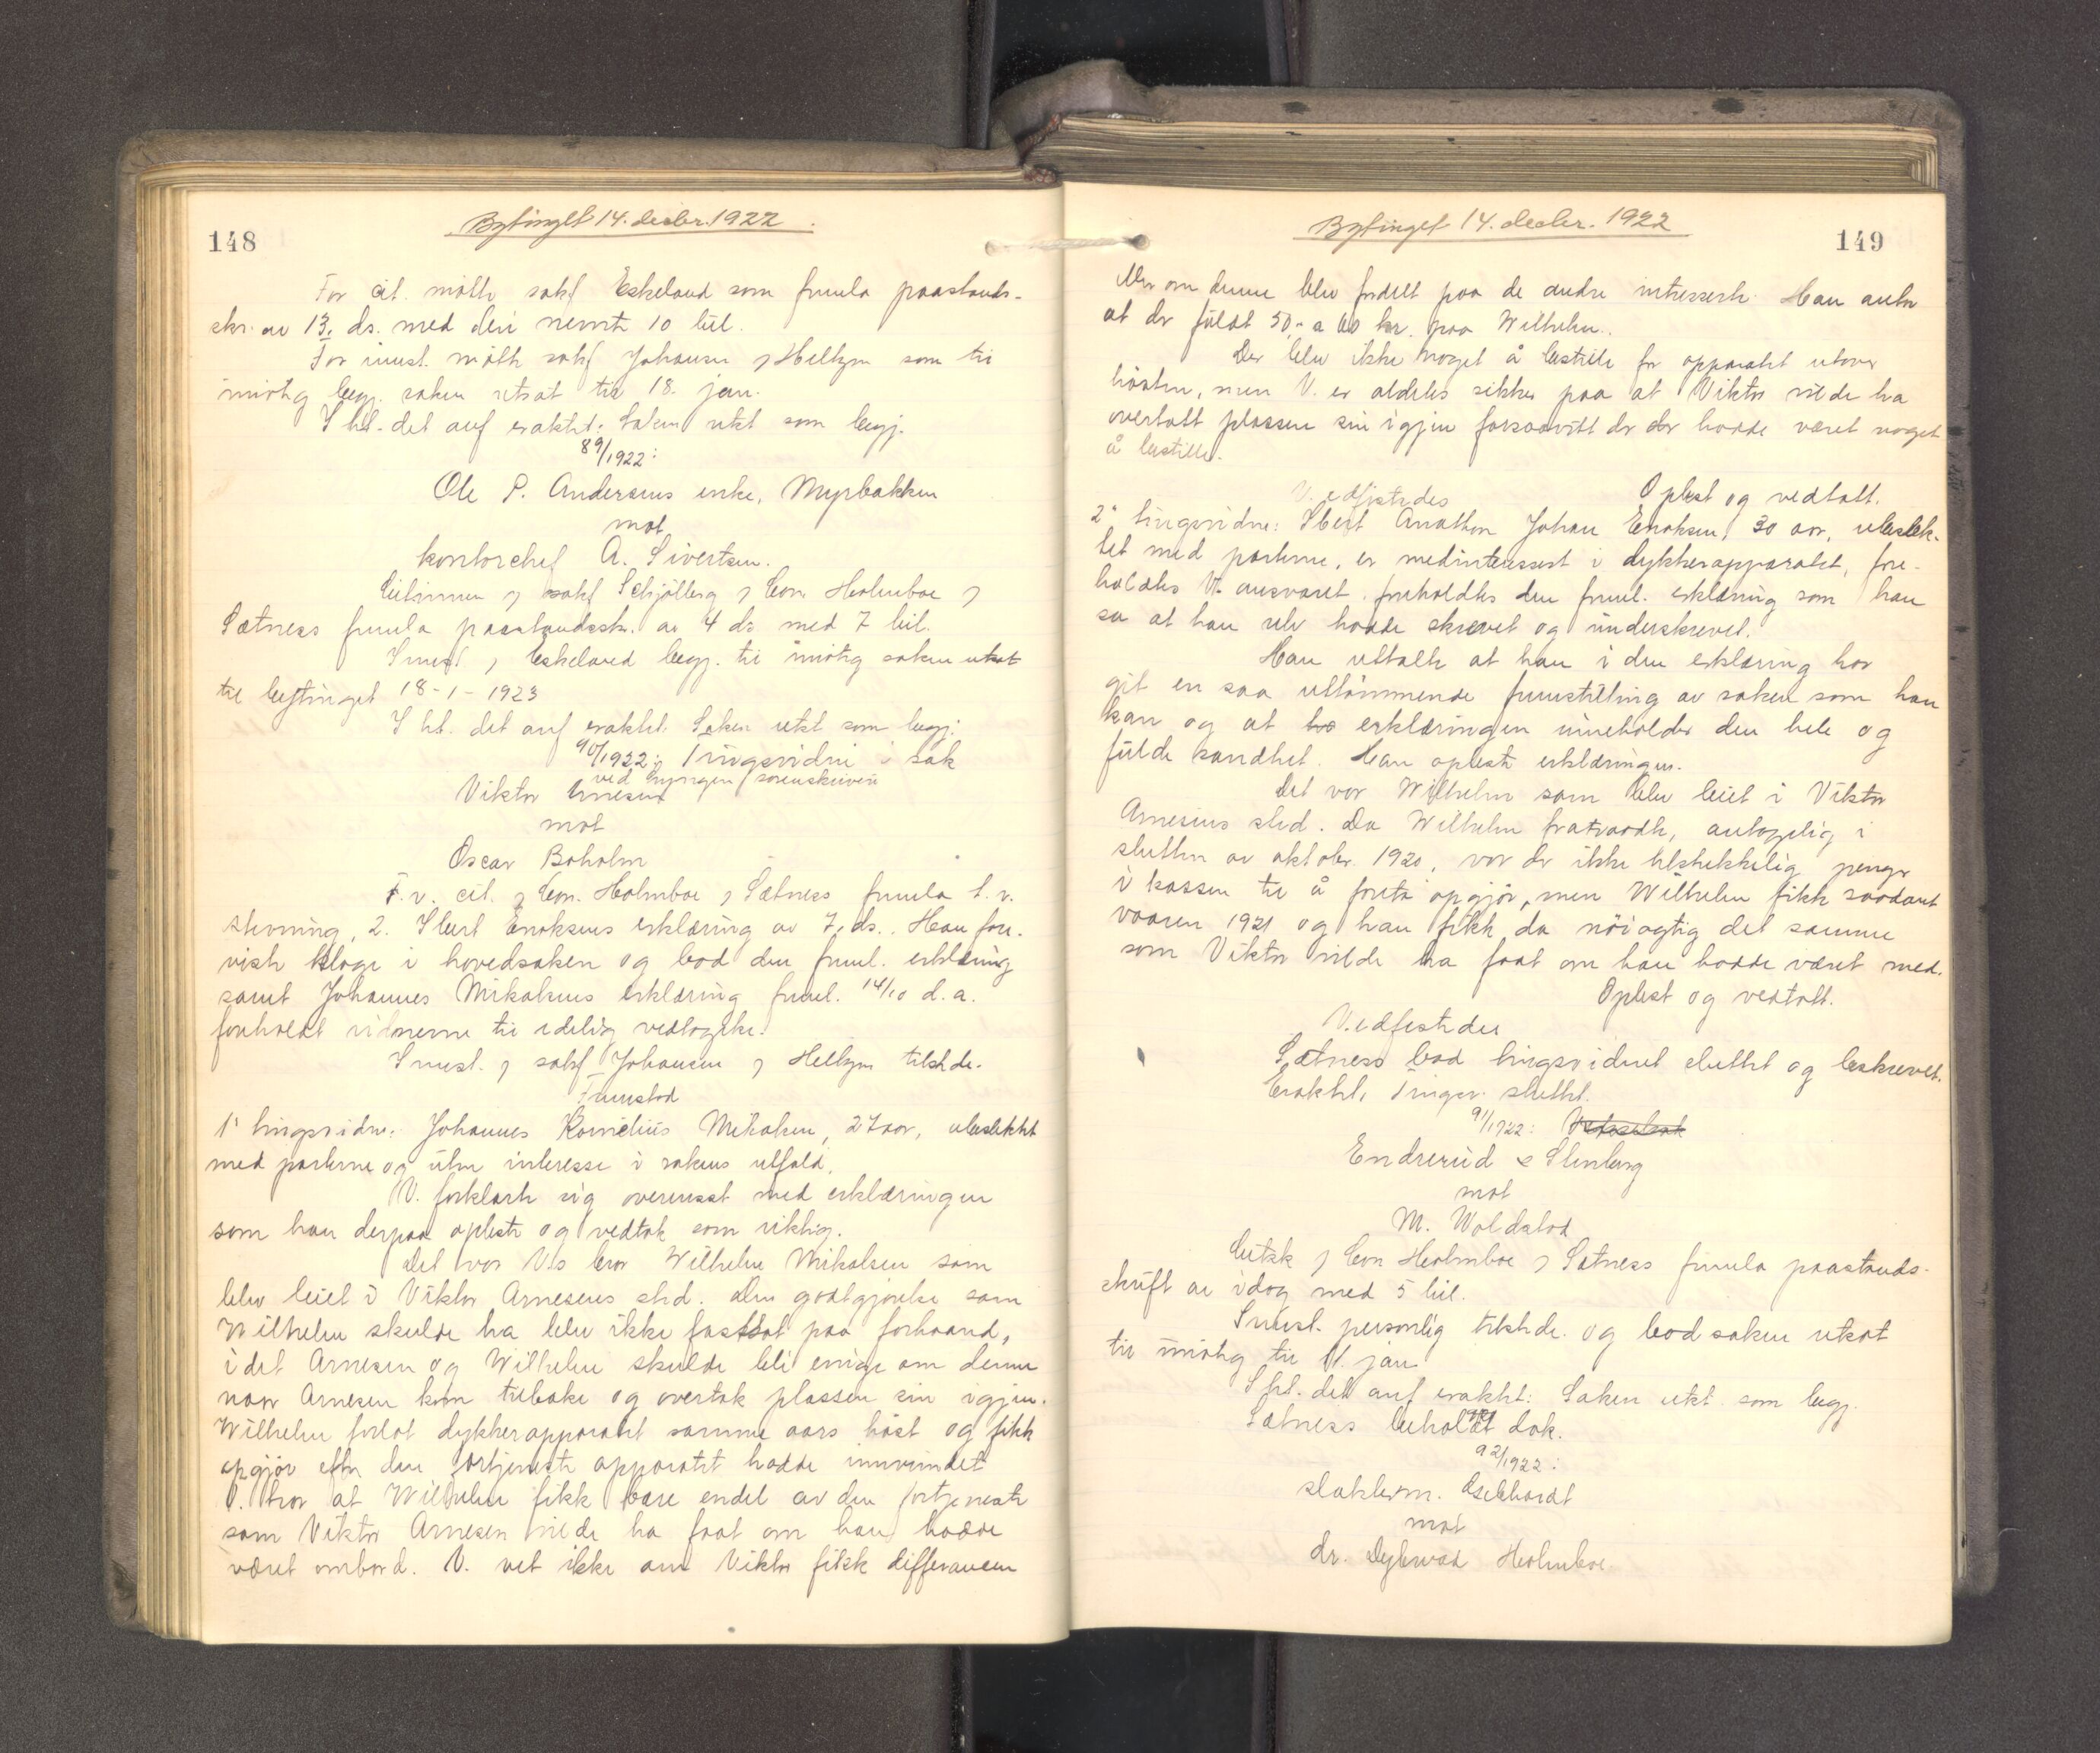 148
Bytinget 14. decbr. 1922.
For cit. møtte sakf Eskeland som fremla paastands-
skr. av 13. ds. med deri nevnte 10 bil.
For innst. møtte sakf Johansen, Hellzen som til
imøtg begj. saken utsat til 18. jan.
I hht. det anf eraktet: Saken utst som begj.
89/1922:
Ole P. Andersens enke, Myrbakken
mot
kontorchef A. Sivertsen.
Citinnen, sakf Schjølberg, Con. Holmboe,
Sætness fremla paastandsskr. av 4 ds med 7 bil.
Innst, Eskeland begj. til imøtg saken utsat
til bytinget 18-1-1923
I ht. det anf eraktet: Saken utst som begj:
90/1922: Tingsvidne i sak
ved Lyngen sorenskriveri
Viktor Arnesen
mot
Oscar Boholm
F. v. cit., Con. Holmboe, Sætness fremla 1. v.
stevning, 2. Sbert Enoksens erklæring av 7. ds.. Han fore-
viste klage i hovedsaken og bad den freml. erklæring
samt Johannes Mikalsens erklæring freml. 14/10 d. a.
foreholdt vidnerne til edelig vedtagelse.
Innst., sakf Johansen, Hellzen tilstede.
Fremstod
1' tingsvidne: Johannes Kornelius Mikalsen, 27 aar, ubeslektet
med parterne og uten interesse i sakens utfald.
V. forklarte sig overensst med erklæringen
som han derpaa opleste og vedtok som riktig.
Det var V.s bror Wilhelm Mikalsen som
blev leiet i Viktor Arnesens sted. Den godtgjørelse som
Wilhelm skulde ha blev ikke fastsat paa forhaand,
idet Arnesen og Wilhelm skulde bli enige om denne
naar Arnesen kom tilbake og overtok plassen sin igjen.
Wilhelm forlot dykkerapparatet samme aars høst og fikk
opgjør efter den fortjeneste apparatet hadde innvundet
V. tror at Wilhelm fikk bare endel av den fortjeneste
som Viktor Arnesen vilde ha faat om han hadde
været ombord. V. vet ikke om Viktor fikk differansen
149
Bytinget 14. decbr. 1922
eller om denne blev fordelt paa de andre interesserte. Han antar
at der faldt 50,- a 60 kr. paa Wilhelm.
Der blev ikke noget å bestille for apparatet utover
høsten, men V. er aldeles sikker paa at Viktor vilde ha
overtatt plassen sin igjen forsaavitt der der hadde været noget
å bestille.
Oplest og vedtatt.
V. edfestedes
2' tingsvidne: Sbert Anathon Johan Enoksen, 30 aar, ubeslek-
tet med parterne, er medinteressert i dykkerapparatet, fore-
holdtes V. ansvaret. foreholdtes den freml. erklæring som han
sa at han selv hadde skrevet og underskrevet.
Han uttalte at han i den erklæring har
git en saa uttømmende fremstilling av saken som han
kan og at erklæringen inneholder den hele og
fulde sandhet. Han opleste erklæringen.
Det var Wilhelm som blev leiet i Viktor
Arnesens sted. Da Wilhelm fratraadte, antagelig i
slutten av oktober 1920, var der ikke tilstrekkelig penger
i kassen til å foreta opgjør, men Wilhelm fikk saadant
vaaren 1921 og han fikk da nøiagtig det samme
som Viktor vilde ha faat om han hadde været med.
Oplest og vedtatt.
V. edfestedes
Sætness bad tingsvidnet sluttet og beskrevet.
Eraktet, Tingsv. sluttet.
91/1922:
Endrerud & Stenberg
mot
M. Woldstad
Citsk, Con Holmboe, Sætness fremla paastands-
skrift av idag med 5 bil.
Innst. personlig tilstede og bad saken utsat
til imøtg til 11. jan
I ht. det anf eraktet: Saken utst. som begj.
Sætness beholdt dok.
92/1922:
slakterm. Gebhardt
mot
dr. Dybwad Holmboe.